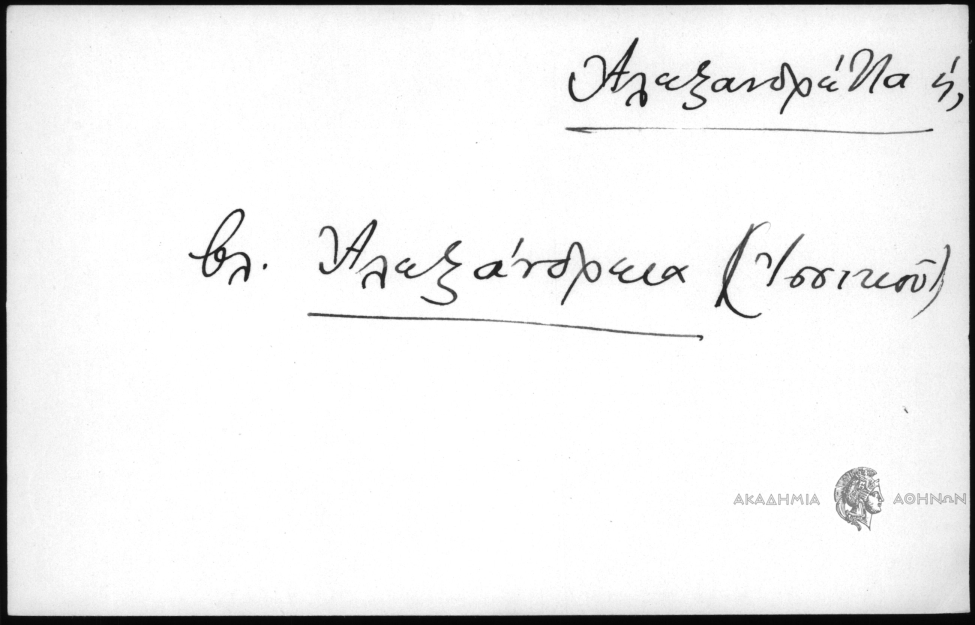 Ἀλεξανδρέττα ἡ,
βλ. Ἀλεξάνδρεια (Ἰσσικοῦ)
ΑΚΑΔΗΜΙΑ ΑΘΗΝΩΝ